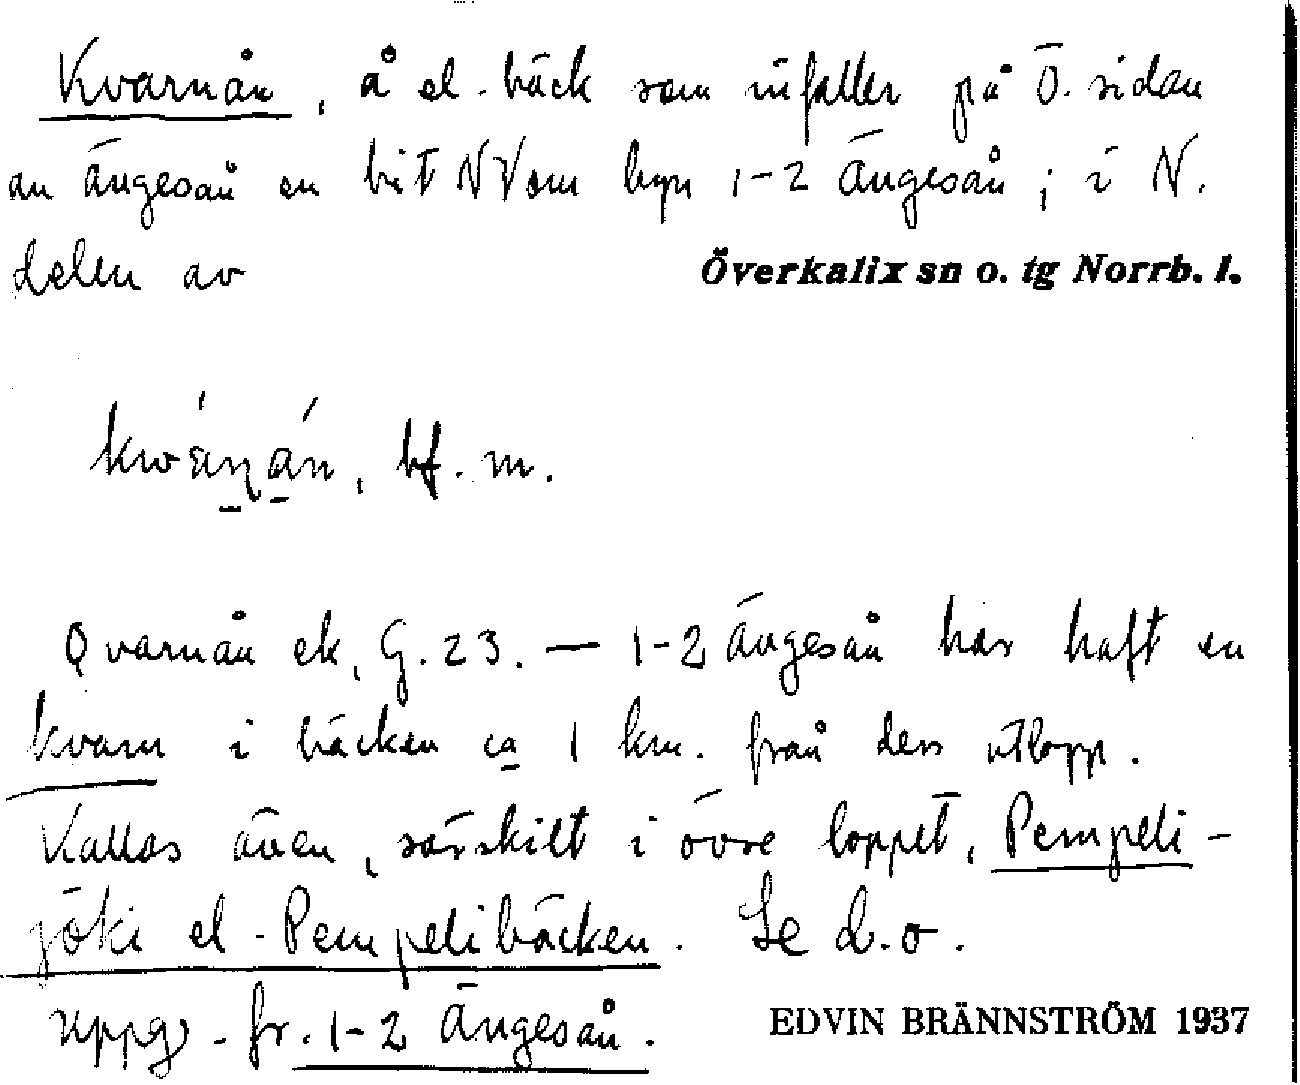 Kvarnån, å el. bäck som infaller på Ö. sidan
av Ängesån en bit NV om byn 1-2 Ängesån; i N.
delen av Överkalix sn o. tg Norrb. l.
bf. m.
Qvarnån ek, G. 23. — 1-2 Ängesån har haft en
kvarn i bäcken ca 1 km. från dess utlopp.
Kallas även, särskilt i övre loppet, Pempeli-
jöki el. Pempelibäcken. Se d.o.
Uppg. fr. 1-2 Ängesån. EDVIN BRÄNNSTRÖM 1937